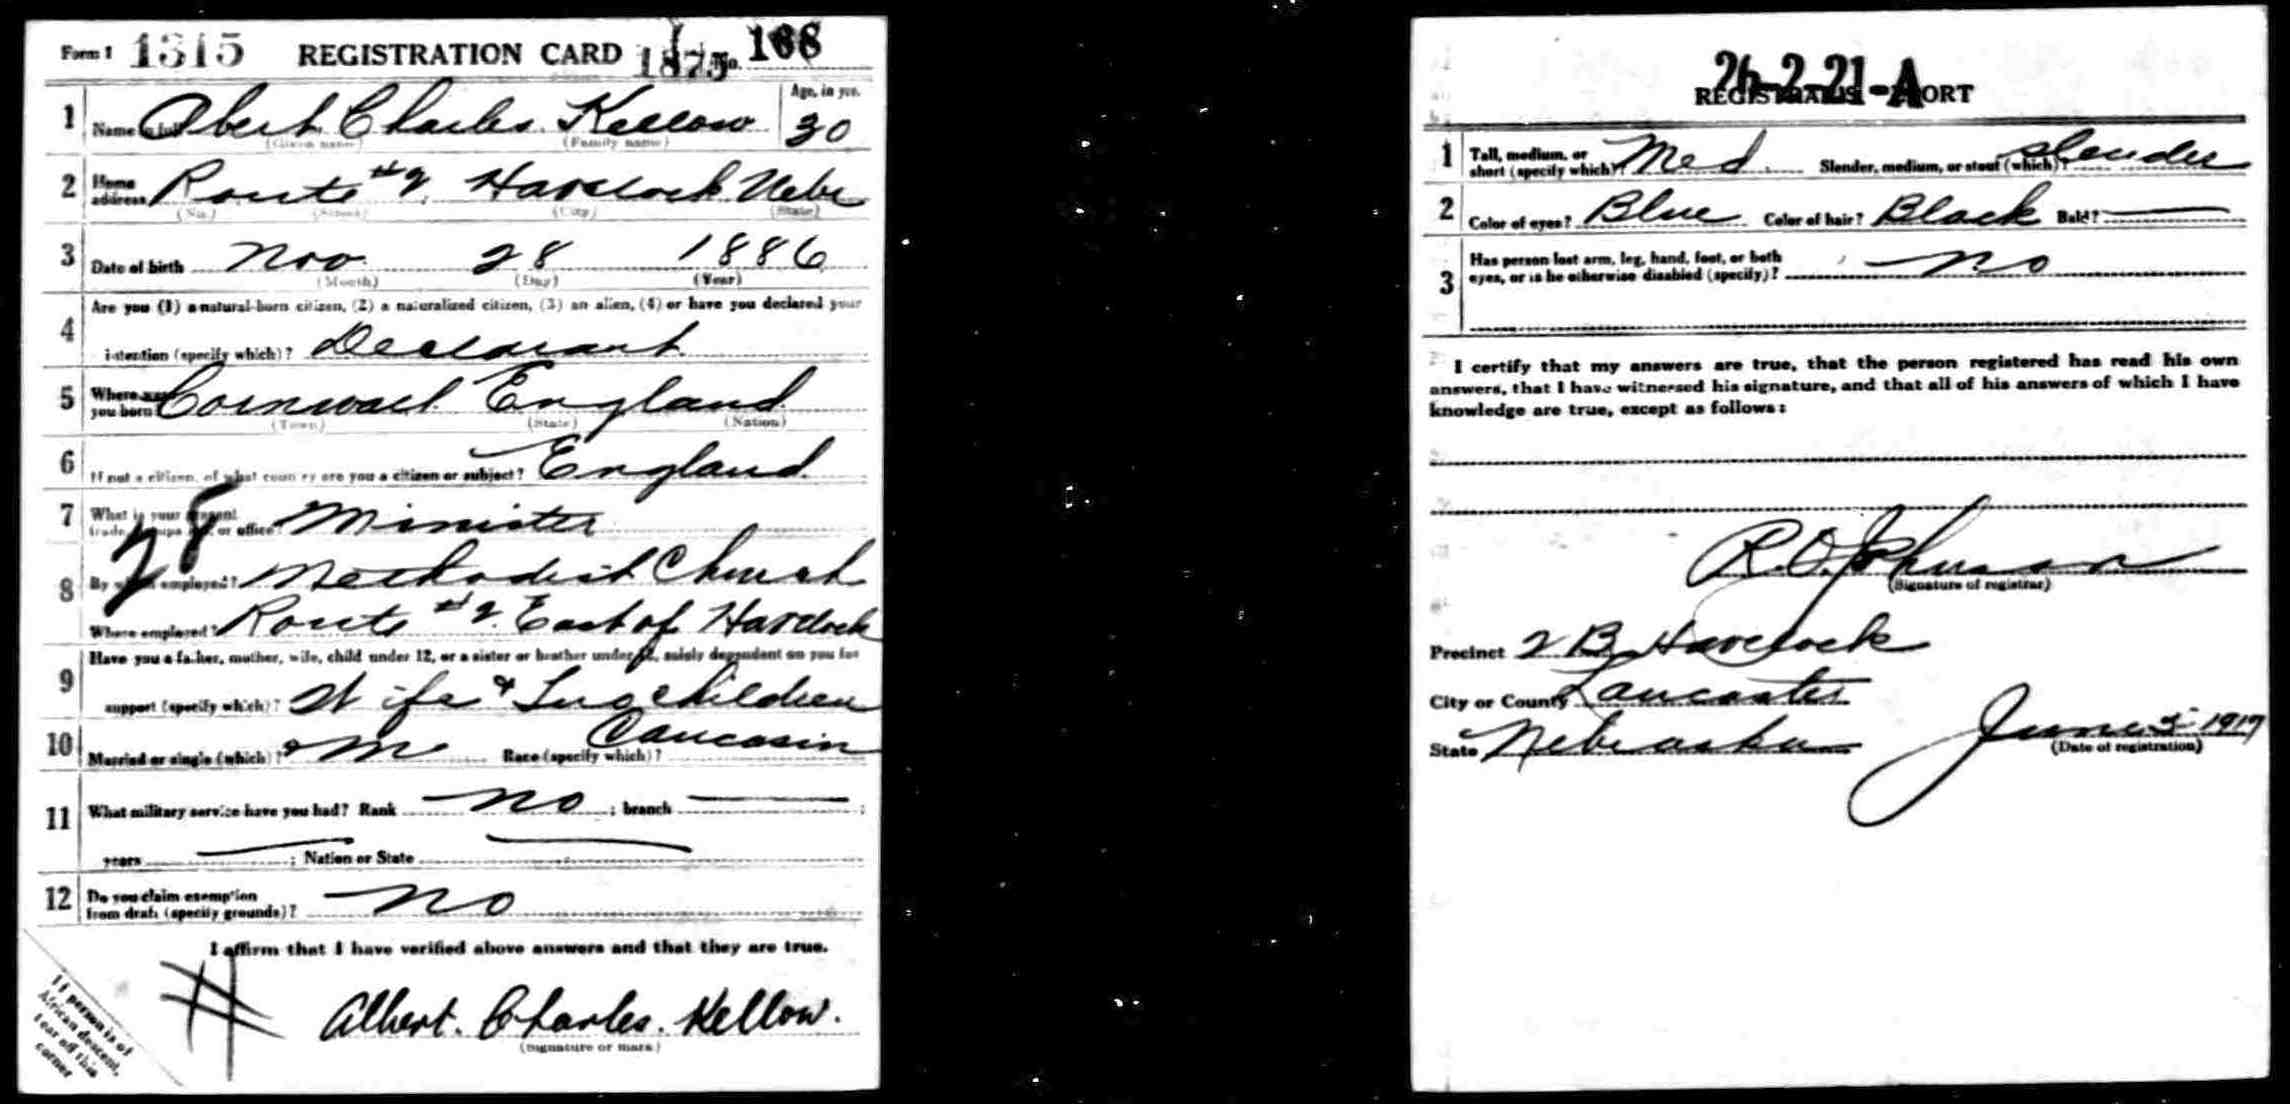 Form 1 1315 REGISTRATION CARD 1875 No. 168
1 Name in full Abert Charles Kellow Age, in yrs. 30
(Given name) (Family name)
2 Home address Route #2. Havelock Nebr
(No.) (Street) (City) (State)
3 Date of birth Nov. 28 1886
(Month) (Day) (Year)
4 Are you (1) a natural-born citizen, (2) a naturalized citizen, (3) an alien, (4) or have you declared your
intention (specify which)? Declarant
5 Where was you born Cornwall England
(Town) (State) (Nation)
6 If not a citizen, of what country are you a citizen or subject? England
7 What is your present trade, occupation, or office? Minister
28
8 By whom employed? Methodist Church
Where employed? Route #2. East of Havelock
9 Have you a father, mother, wife, child under 12, or a sister or brother under 12, solely dependent on you for
support (specify which)? Wife & Two children
10 Married or single (which)? M Race (specify which)? Caucasin
11 What military service have you had? Rank no ; branch ;
years ; Nation or State
12 Do you claim exemption from draft (specify grounds)? no
I affirm that I have verified above answers and that they are true.
Albert. Charles. Kellow.
(Signature or mark)
If person is of
African descent,
tear off this
corner
26-2-21-A
REGISTRAR'S REPORT
1 Tall, medium, or short (specify which)? Med. Slender, medium, or stout (which)? slender
2 Color of eyes? Blue Color of hair? Black Bald?
3 Has person lost arm, leg, hand, foot, or both eyes, or is he otherwise disabled (specify)? no
I certify that my answers are true, that the person registered has read his own
answers, that I have witnessed his signature, and that all of his answers of which I have
knowledge are true, except as follows:
R.O. Johnson
(Signature of registrar)
Precinct 2 B Havelock
City or County Lancaster
State Nebraska June 5 1917
(Date of registration)